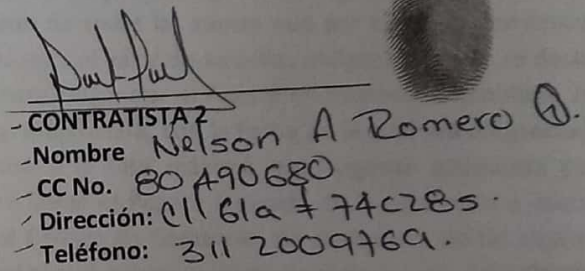 - CONTRATISTA 2
- Nombre Nelson A Romero
- CC No. 80490680
- Dirección: Cll 61a # 74c28s.
- Teléfono: 311 2009769.